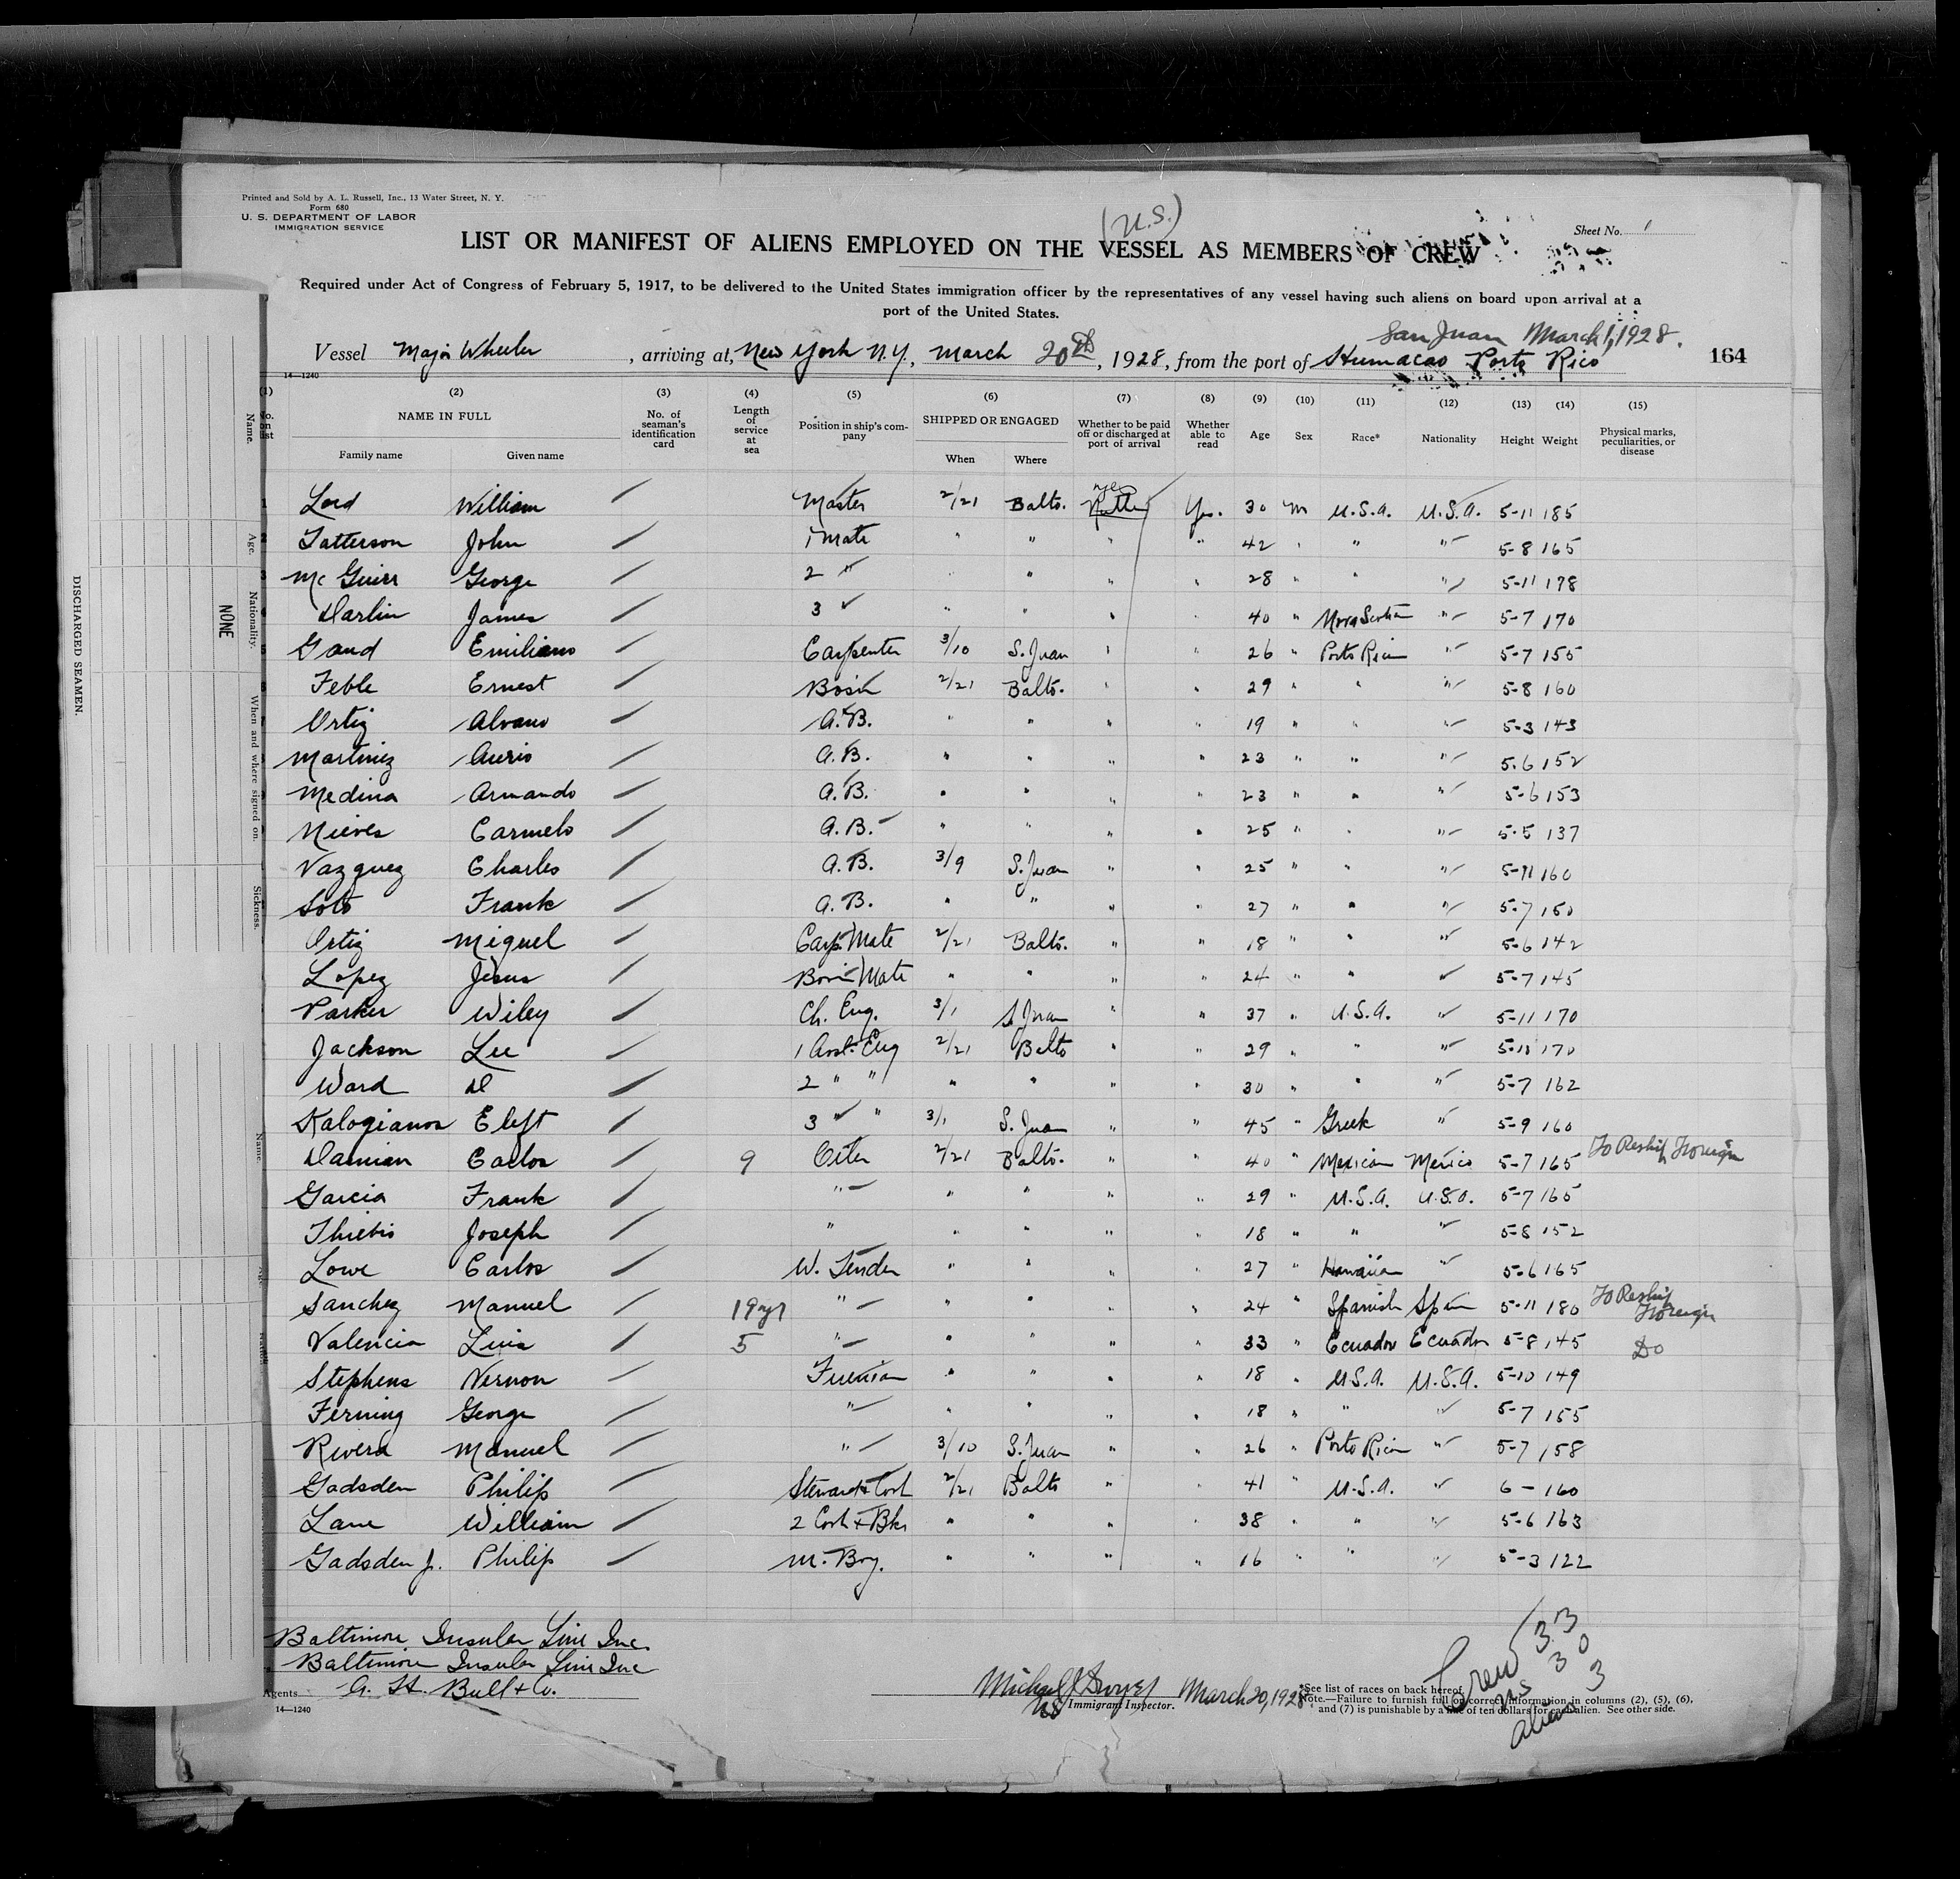 Printed and Sold by A. L. Russell, Inc., 13 Water Street, N. Y.
Form 680
U. S. DEPARTMENT OF LABOR
IMMIGRATION SERVICE
(U.S.)
Sheet No. 1
LIST OR MANIFEST OF ALIENS EMPLOYED ON THE VESSEL AS MEMBERS OF CREW
Required under Act of Congress of February 5, 1917, to be delivered to the United States immigration officer by the representatives of any vessel having such aliens on board upon arrival at a
port of the United States.
San Juan March 1, 1928.
Vessel Major Wheeler, arriving at New York N.Y., March 20th, 1928, from the port of Humacao Porto Rico 164
14—1240
(1) (2) (3) (4) (5) (6) (7) (8) (9) (10) (11) (12) (13) (14) (15)
No. on list NAME IN FULL No. of seaman's identification card Length of service at sea Position in ship's company SHIPPED OR ENGAGED Whether to be paid off or discharged at port of arrival Whether able to read Age Sex Race* Nationality Height Weight Physical marks, peculiarities, or disease
Family name Given name When Where
1 Lord William Master 2/21 Balto. Yes. 30 M U.S.A. U.S.A. 5-11 185
2 Patterson John 1 Mate " " " " 42 " " " 5-8 165
3 Mc Guirr George 2 " " " " " 28 " " " 5-11 178
Harlin James 3 " " " " 40 " Nova Scotia " 5-7 170
5 Gand Emiliano Carpenter 3/10 S. Juan " " 26 " Porto Rican " 5-7 155
Feble Ernest Bosn 2/21 Balto. " " 29 " " " 5-8 160
Ortiz Alvaro A.B. " " " " 19 " " " 5-3 143
Martinez Aurio A.B. " " " " 23 " " " 5.6 152
Medina Armando A.B. " " " " 23 " " " 5-6 153
Nieves Carmelo A.B. " " " " 25 " " " 5-5 137
Vazquez Charles A.B. 3/9 S. Juan " " 25 " " " 5-11 160
Soto Frank A.B. " " " " 27 " " " 5-7 150
Ortiz Miguel Carp. Mate 2/21 Balto. " " 18 " " " 5-6 142
Lopez Jesus Bosn Mate " " " " 24 " " 5-7 145
Parker Wiley Ch. Eng. 3/1 S. Juan " " 37 " U.S.A. " 5-11 170
Jackson Lee 1 Asst. Eng 2/21 Balto " " 29 " " " 5-11 170
Ward 2 " " " " " " 30 " " " 5-7 162
Kalogianos Eleft 3 " " 3/1 S. Juan " " 45 " Greek " 5-9 160
Damian Carlos 9 Oiler 2/21 Balto. " " 40 " Mexican Mexico 5-7 165 To Reship Foreign
Garcia Frank " " " " " 29 " U.S.A. U.S.A. 5-7 165
Joseph " " " " " 18 " " " 5-8 152
Lowe Carlos W. Tender " " " " 27 " Hawaiian " 5-6 165
Sanchez Manuel 19 yr " " " " " 24 " Spanish Spain 5-11 180 To Reship Foreign
Valencia Luis 5 " " " " " 33 " Ecuador Ecuador 5-8 145 Do
Stephens Vernon Fireman " " " " 18 " U.S.A. U.S.A. 5-10 149
Ferning George " " " " " 18 " " 5-7 155
Rivera Manuel " 3/10 S. Juan " " 26 " Porto Rican " 5-7 158
Gadsden Philip Steward & Cook 2/21 Balto " " 41 " U.S.A. " 6 - 160
Lane William 2 Cook & Bkr " " " " 38 " " " 5-6 163
Gadsden Jr. Philip M. Boy. " " " " 16 " " " 5-3 122
Baltimore Insular Line Inc.
Baltimore Insular Line Inc
Agents A. H. Bull & Co.
14—1240
Michael J Dwyer March 20, 1928
Immigrant Inspector.
*See list of races on back hereof.
Note.—Failure to furnish full or correct information in columns (2), (5), (6),
and (7) is punishable by a fine of ten dollars for each alien. See other side.
Crew 33
US 30
Aliens 3
DISCHARGED SEAMEN.
NONE
Name.
Age.
Nationality.
When and where signed on.
Sickness.
Name.